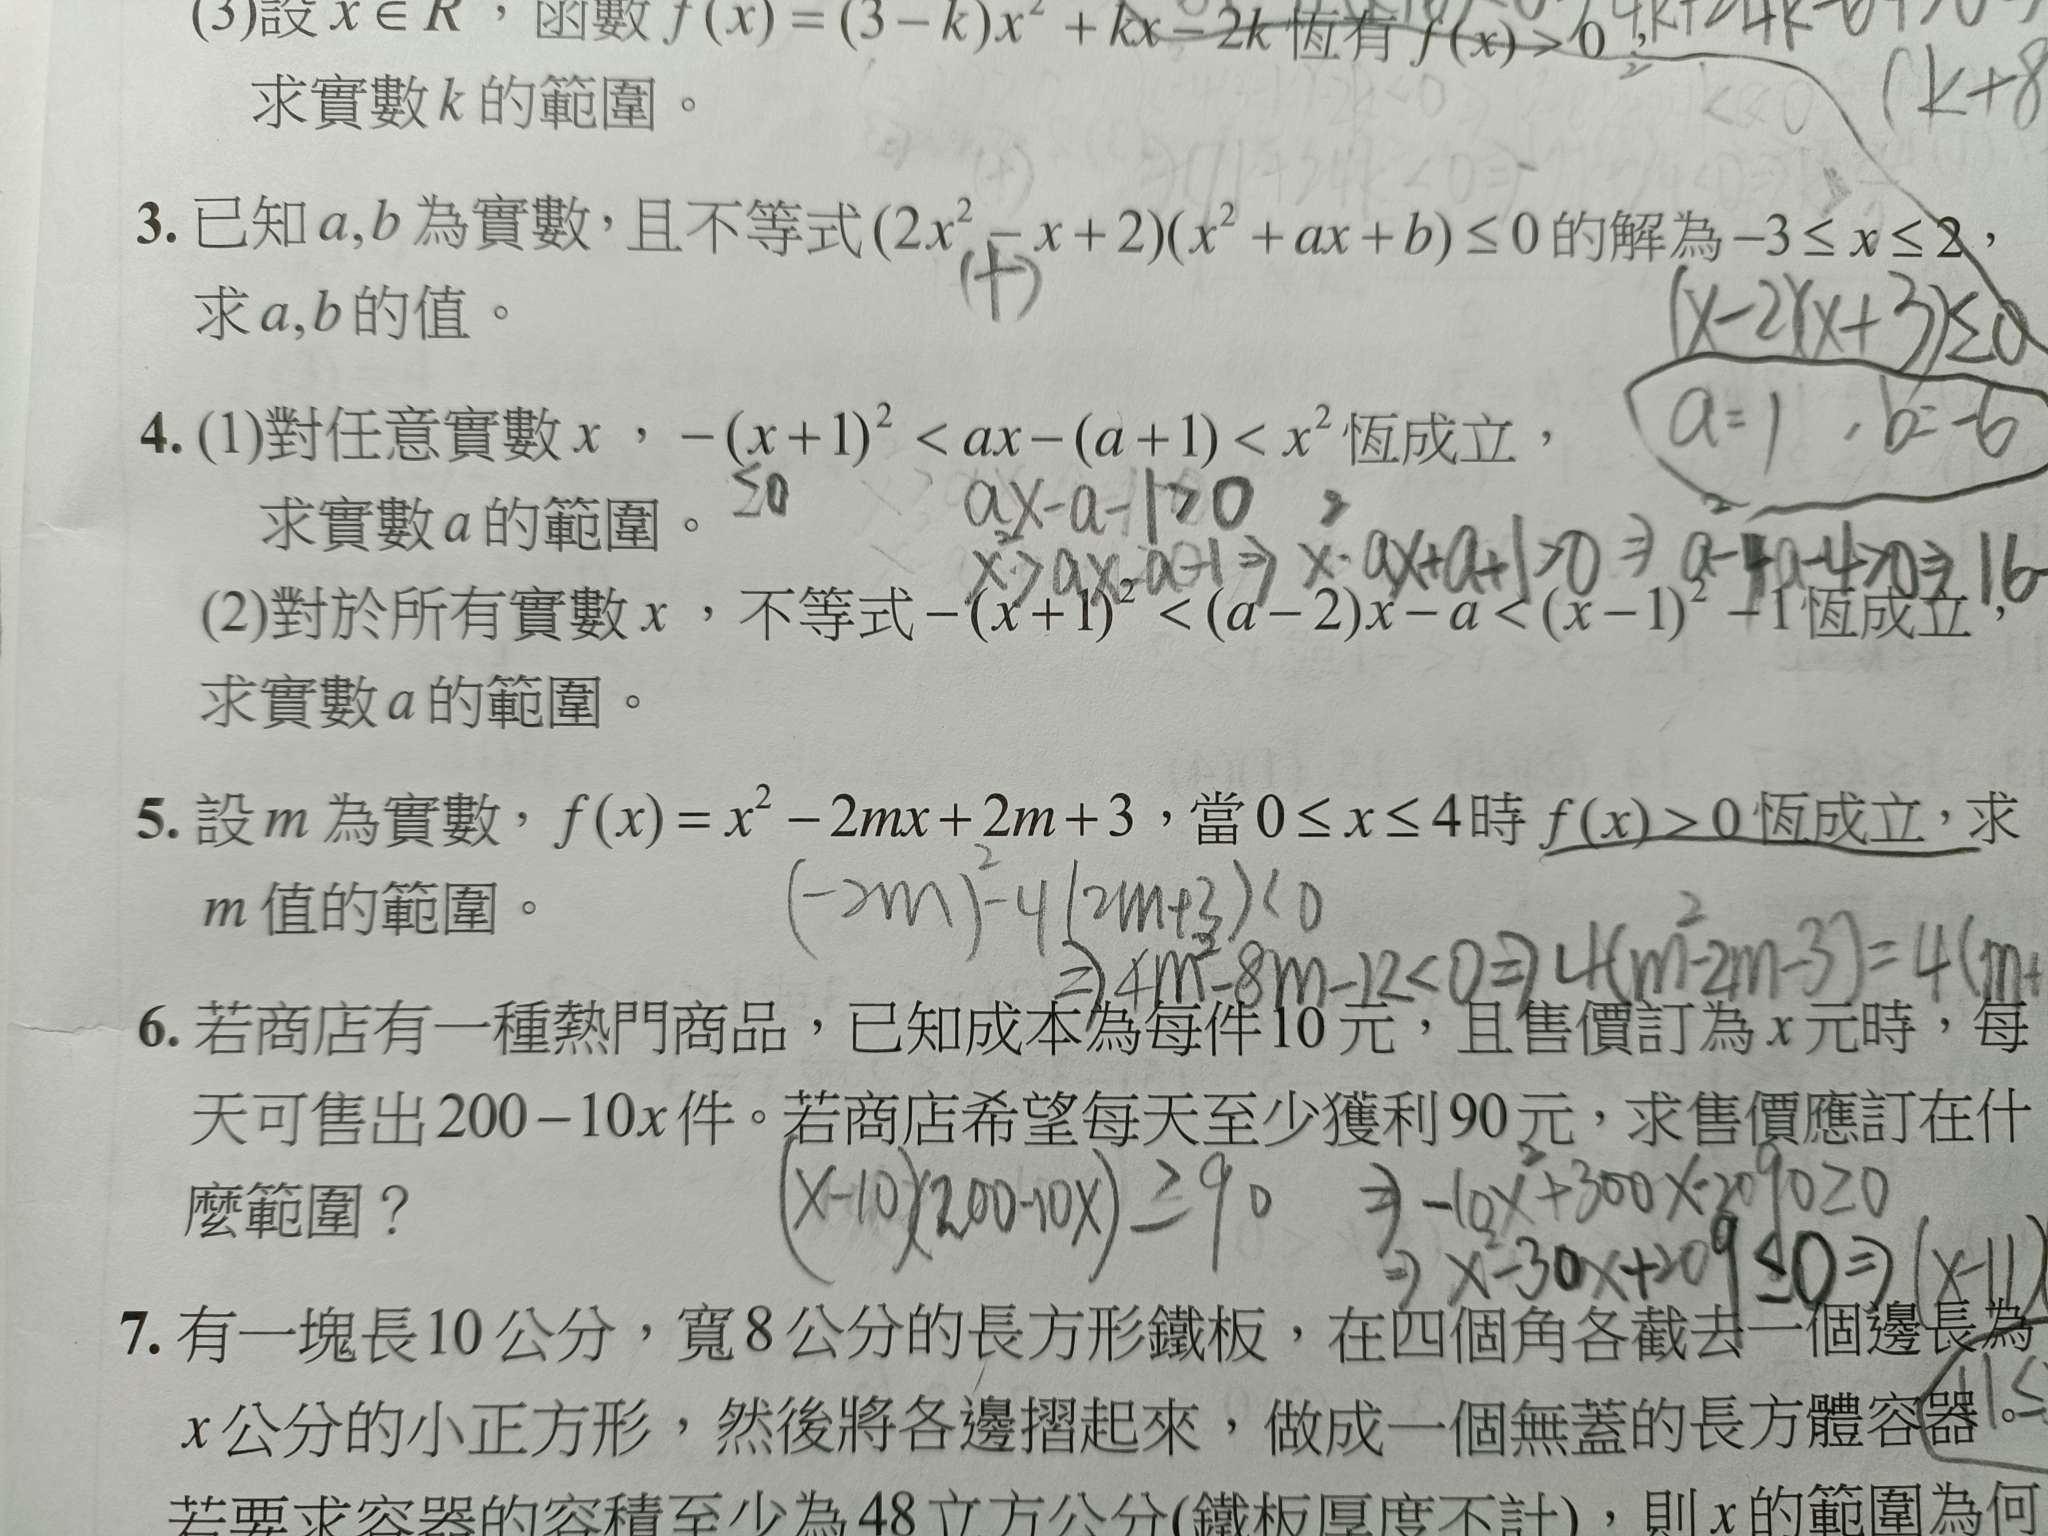 (3)設 x ∈ R,函數 f(x) = (3 − k)x² + kx − 2k 恆有 f(x) > 0,
(k+8
求實數 k 的範圍。
3. 已知 a,b 為實數,且不等式 (2x² − x + 2)(x² + ax + b) ≤ 0 的解為 −3 ≤ x ≤ 2,
(+)
求 a,b 的值。
(x-2)(x+3)≤0
a=1 , b=-6
4. (1)對任意實數 x ,−(x+1)² < ax − (a+1) < x² 恆成立,
≤0
ax-a-1>0
求實數 a 的範圍。
x²>ax-a-1⇒ x²-ax+a+1>0 ⇒ a²-4a-4>0⇒ 16-
(2)對於所有實數 x ,不等式 −(x+1)² < (a−2)x − a < (x−1)² − 1 恆成立,
求實數 a 的範圍。
5. 設 m 為實數,f(x) = x² − 2mx + 2m + 3,當 0 ≤ x ≤ 4 時 f(x) > 0 恆成立,求
m 值的範圍。
(-2m)²-4(2m+3)<0
⇒4m²-8m-12<0⇒4(m²-2m-3)=4(m+
6. 若商店有一種熱門商品,已知成本為每件 10 元,且售價訂為 x 元時,每
天可售出 200 − 10x 件。若商店希望每天至少獲利 90 元,求售價應訂在什
麼範圍?
(x-10)(200-10x)≥90 ⇒ -10x²+300x-2090≥0
⇒ x²-30x+209≤0⇒(x-11)
7. 有一塊長 10 公分,寬 8 公分的長方形鐵板,在四個角各截去一個邊長為
11≤
x 公分的小正方形,然後將各邊摺起來,做成一個無蓋的長方體容器。
若要求容器的容積至少為 48 立方公分(鐵板厚度不計),則 x 的範圍為何